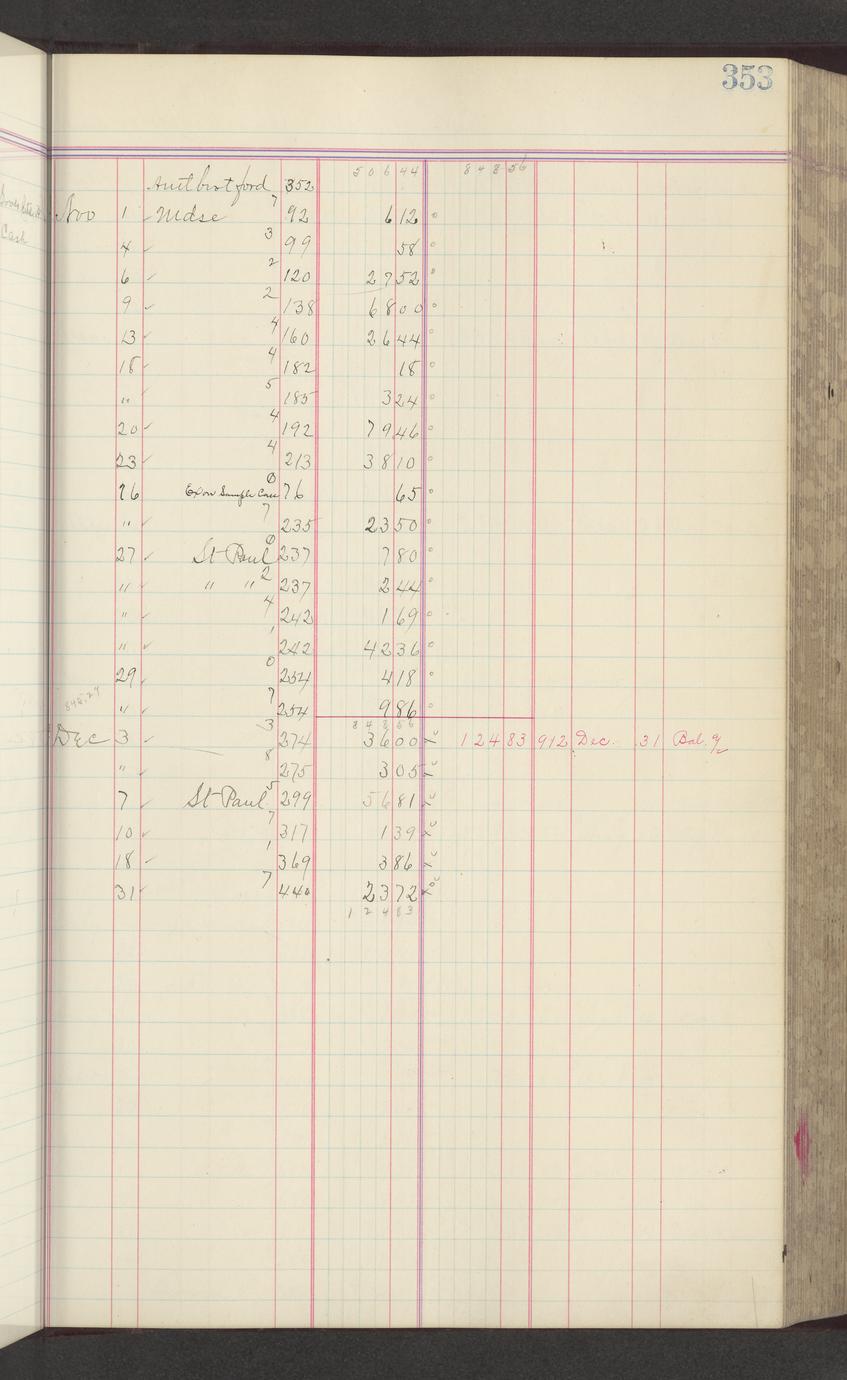 353
Amt brot ford 352 506 44 848 56
Nov 1 Mdse 7 92 6 12
4 3 99 58
6 2 120 27 52
9 2 138 68 00
13 4 160 26 44
18 4 182 18
" 5 185 3 24
20 4 192 79 46
23 4 213 38 10
26 Exon Sample Case 0 76 65
" 7 235 23 50
27 St Paul 0 237 7 80
" " " 2 237 2 44
" 4 242 1 69
" 1 242 42 36
29 0 254 4 18
" 7 254 9 86
848.29
848 56
Dec 3 3 274 36 00 124 83 912 Dec. 31 Bal. %
" 8 275 3 05
7 St Paul 5 299 56 81
10 7 317 1 39
18 1 369 3 86
31 7 440 23 72
124 83
Cash